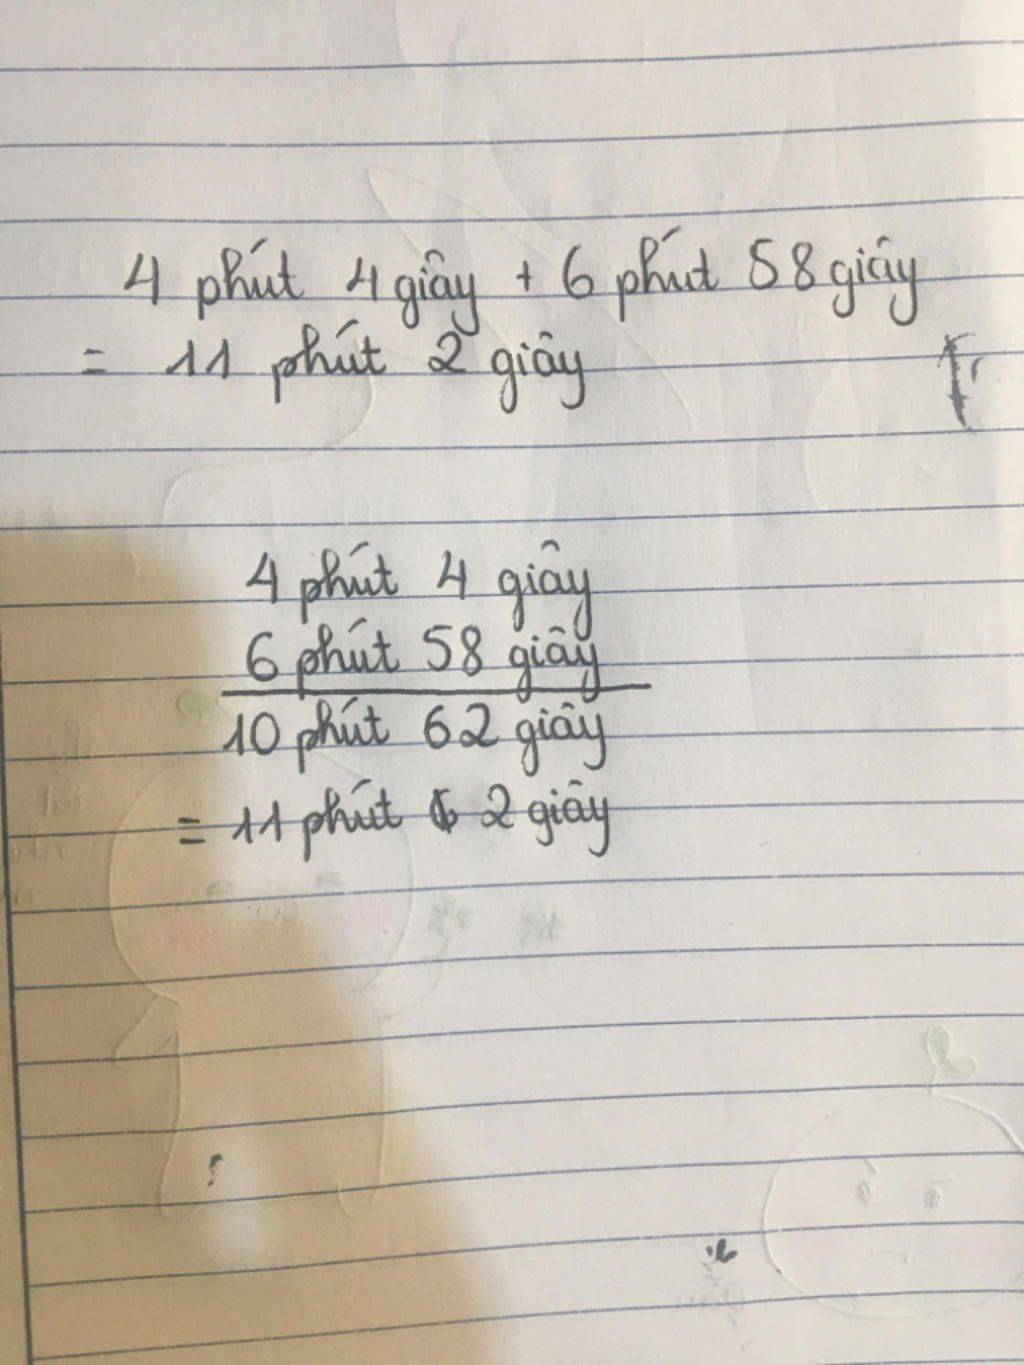 4 phút 4 giây + 6 phút 58 giây
= 11 phút 2 giây
4 phút 4 giây
6 phút 58 giây
10 phút 62 giây
= 11 phút 2 giây